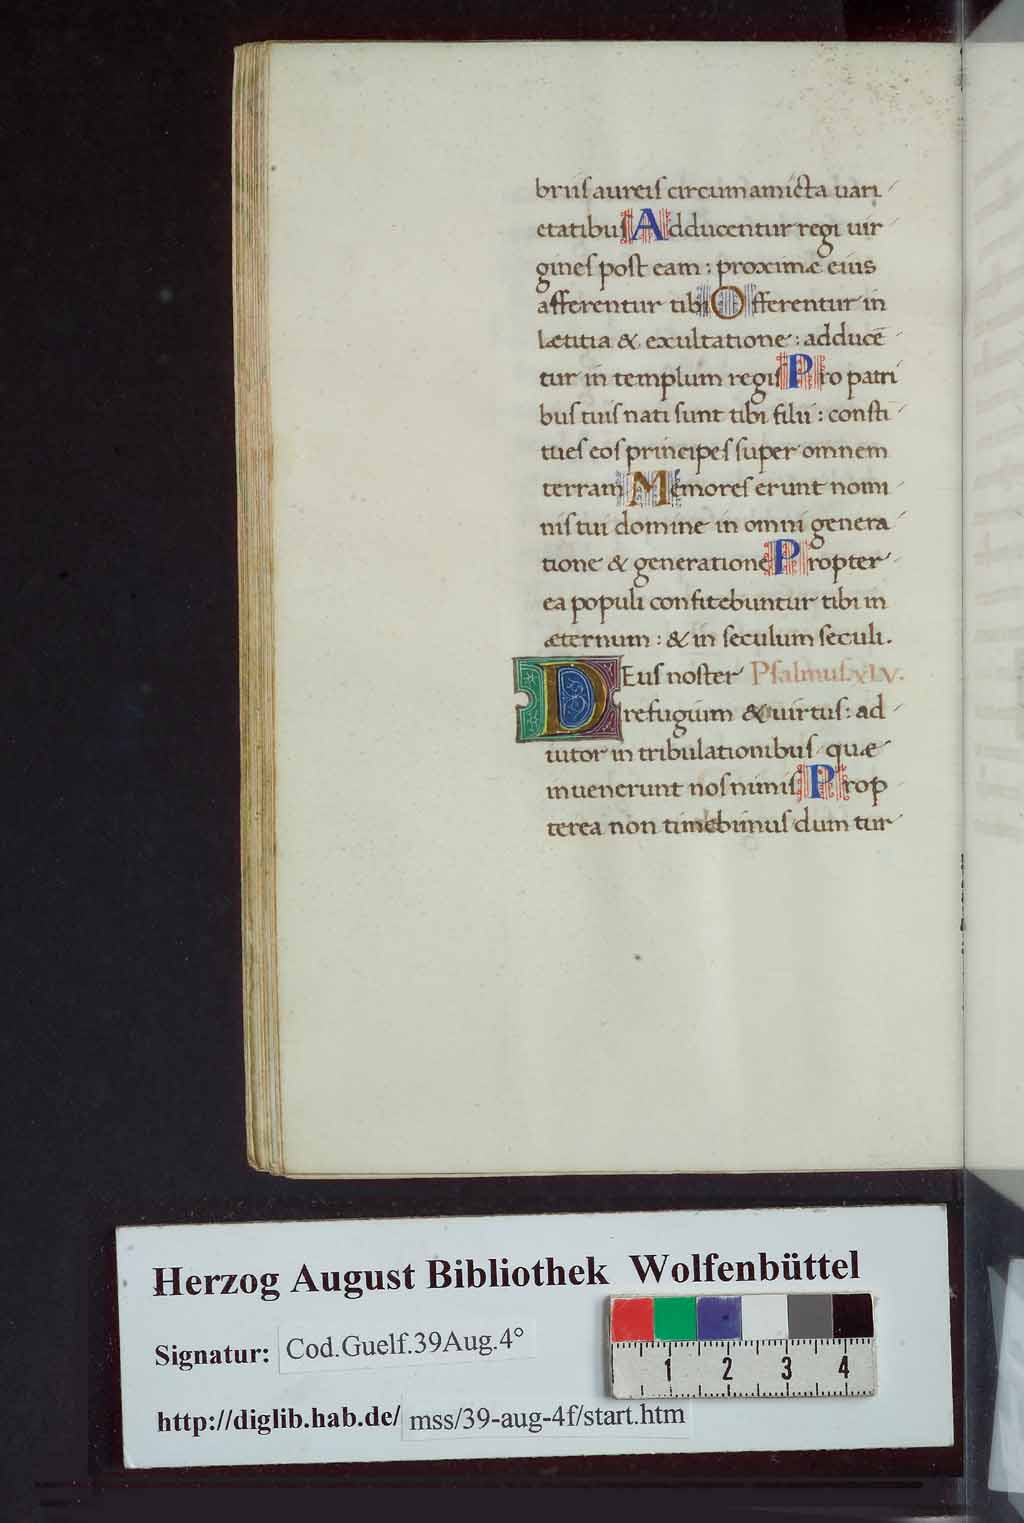 briis aureis circumamicta uari
etatibus Adducentur regi uir
gines post eam : proximæ eius
afferentur tibi Offerentur in
lætitia & exultatione : adducē
tur in templum regis Pro patri
bus tuis nati sunt tibi filii : consti
tues eos principes super omnem
terram Memores erunt nomi
nis tui domine in omni genera
tione & generatione Propter
ea populi confitebuntur tibi in
æternum : & in seculum seculi.
DEus noster Psalmus.xlv.
refugium & uirtus : ad
iutor in tribulationibus quæ
inuenerunt nos nimis Prop
terea non timebimus dum tur
Herzog August Bibliothek Wolfenbüttel
Signatur: Cod.Guelf.39Aug.4°
1 2 3 4
http://diglib.hab.de/ mss/39-aug-4f/start.htm